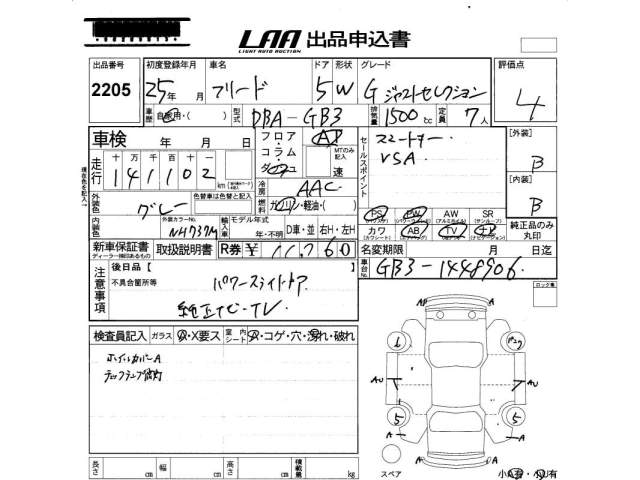 LAA 出品申込書
LIGHT AUTO AUCTION
出品番号 初度登録年月 車名 ドア 形状 グレード 評価点
2205 25年 月 フリード 5 W G ジャストセレクション 4
車歴 自家用・( ) 型式 DBA-GB3 排気量 1500cc 定員 7人
車検 年 月 日 フロア・コラム・ダッシュ AT MTのみ記入 速 セールスポイント スマートキー・ 【外装】
走行 十 万 千 百 十 一 VSA B
141102 km 冷房 AAC 【内装】
外装色 グレー 色替車は色替と記入 燃料 ガソリン・軽油・( ) B
現在色を記入→
内装色 外装カラーNo. NH737M 輸入車 モデル年式 年・不明 D車・並 右H・左H
PS PW AW SR
カワ AB TV ナビ 純正品のみ丸印
新車保証書 取扱説明書 R券 ¥ 11,760 名変期限 月 日迄
ディーラー捺印あるもの
車台No. GB3-1448906
注意事項 後日品【 】 ロック車
不具合箇所等 パワースライドドア
純正ナビ・TV
検査員記入 ガラス A・X要ス 室内シート A・コゲ・穴・汚れ・破れ
ホイールカバーA
長さ cm 幅 cm 高さ cm 積載量 kg
スペア
A A
AU
5 5
A A